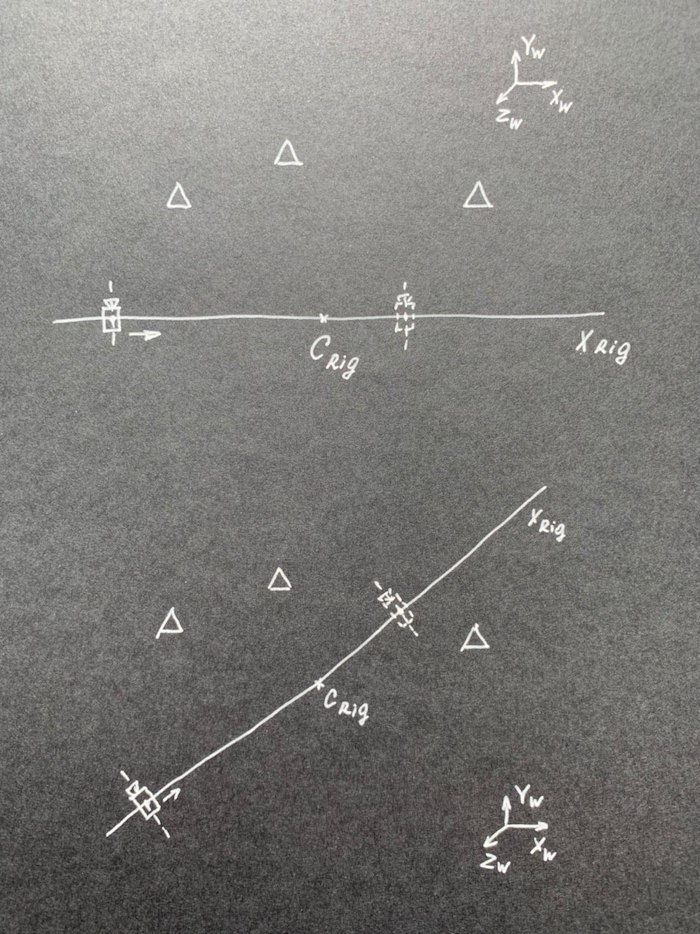 Yw
Xw
Zw
CRig
XRig
XRig
CRig
Yw
Xw
Zw